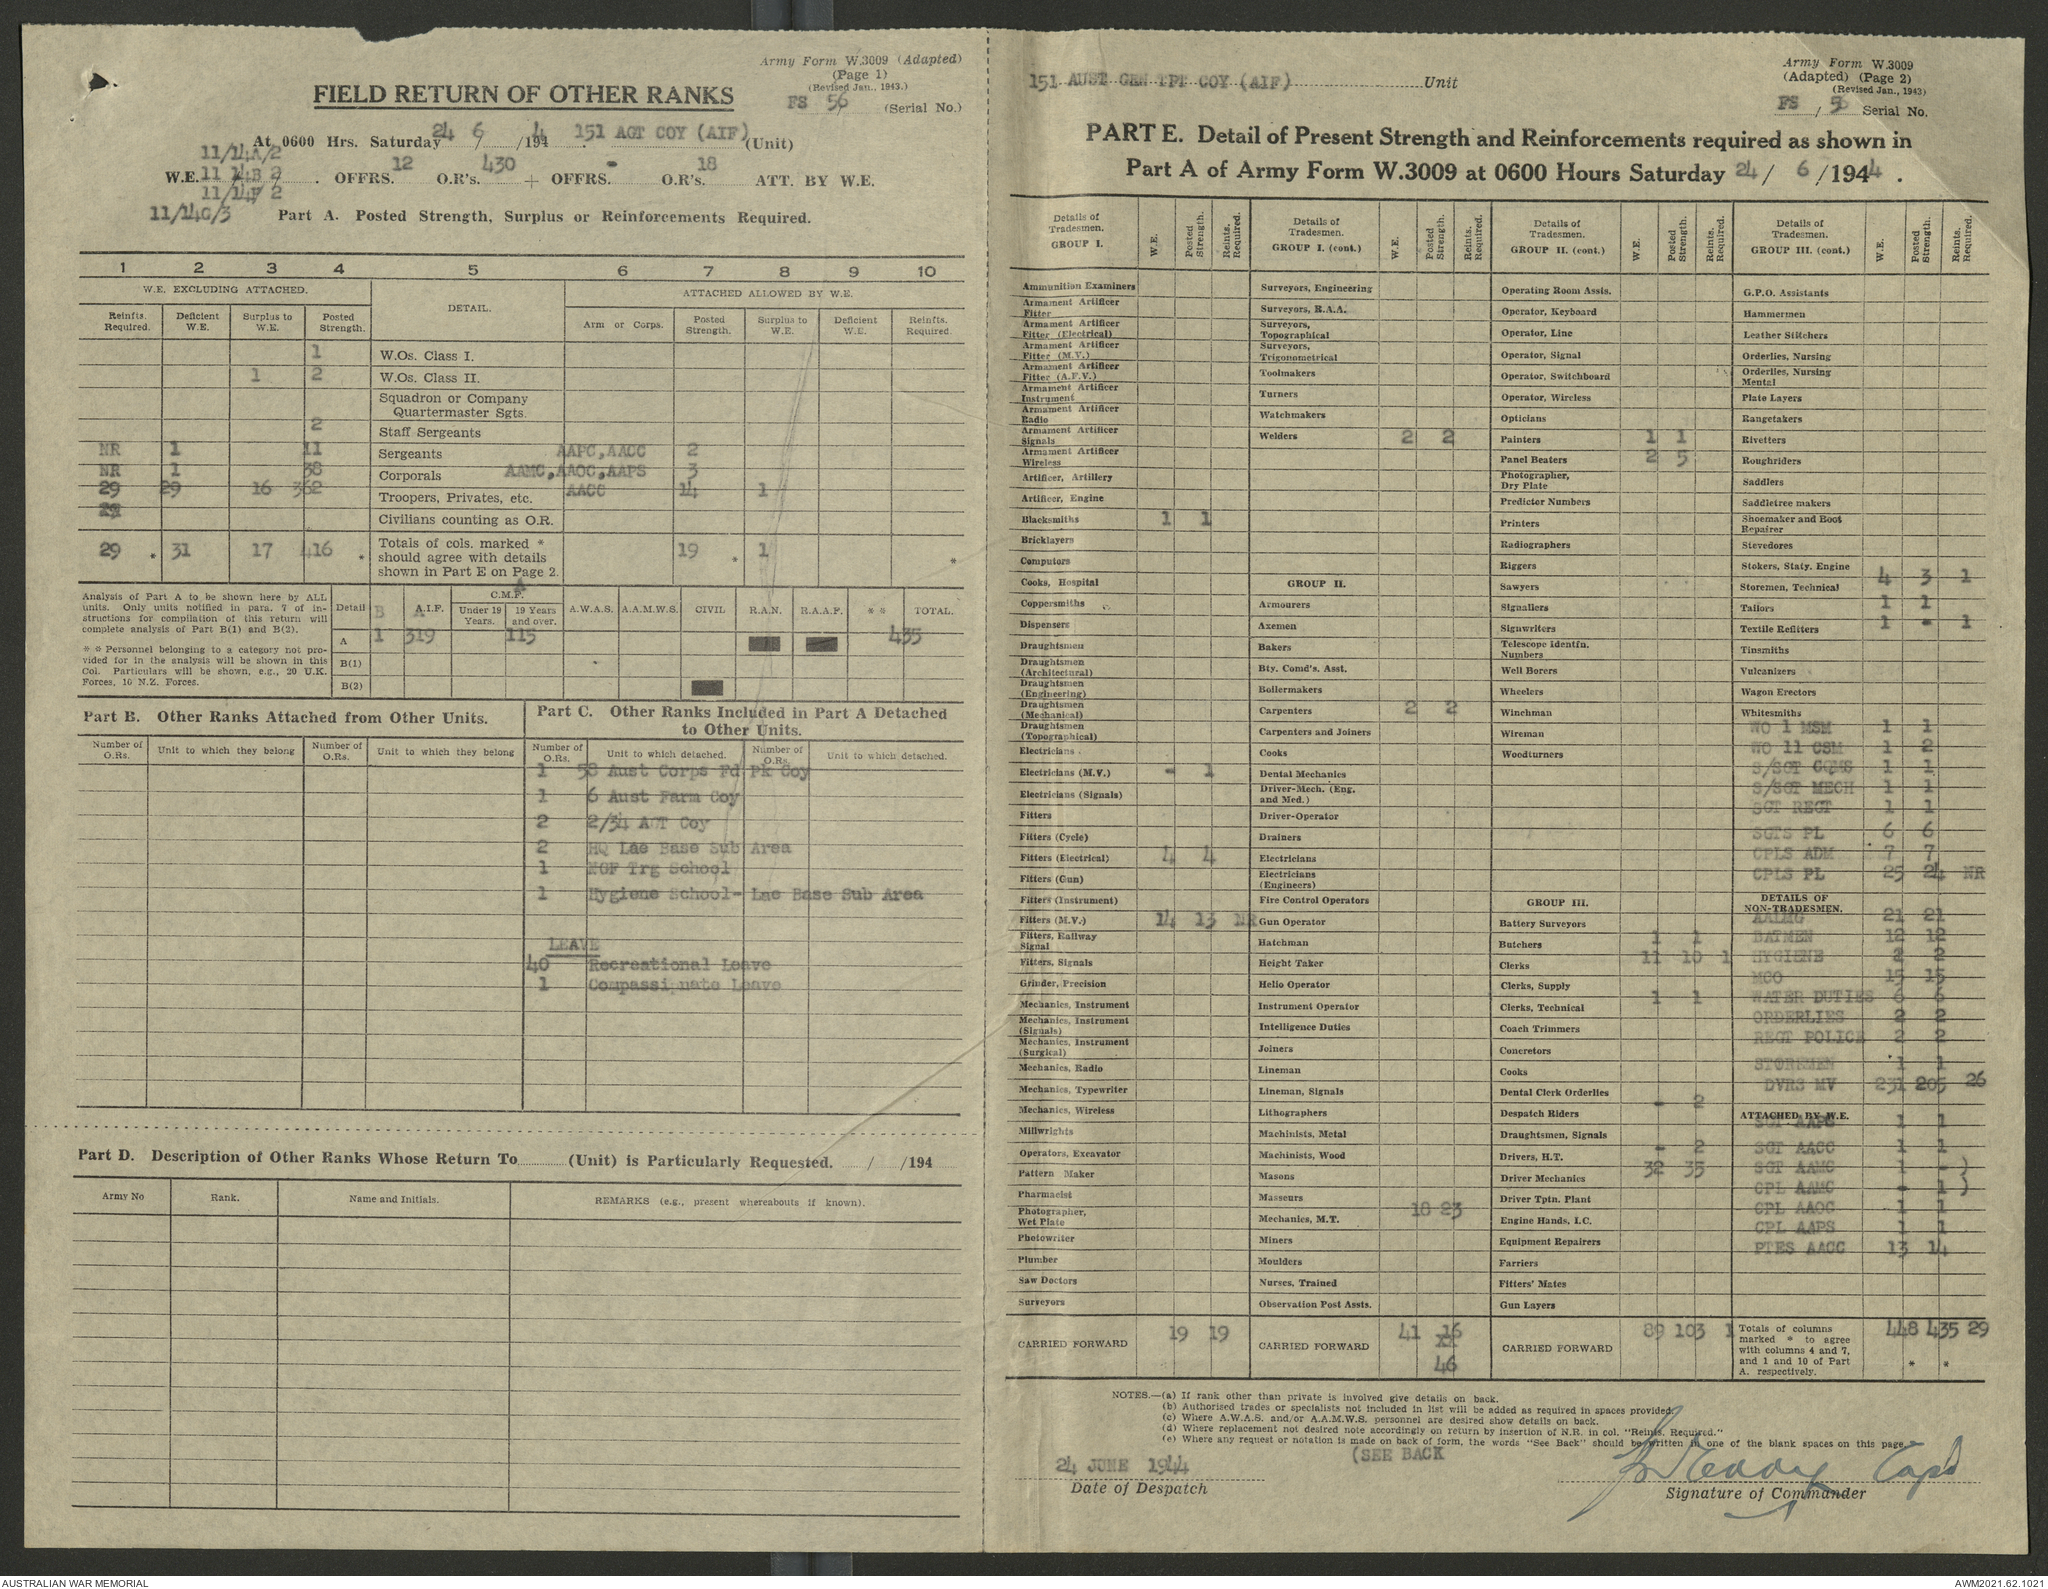 Army Form W.3009 (Adapted)
(Page 1)
(Revised Jan., 1943.)
FIELD RETURN OF OTHER RANKS
FS 56 (Serial No.)
At 0600 Hrs. Saturday 24 / 6 /194 4 . 151 AGT COY (AIF) (Unit)
11/14A/2
W.E. 11 14B 2 . OFFRS. 12 O.R's. 430 + OFFRS. - O.R's. 18 ATT. BY W.E.
11/14F 2
11/14G/3 Part A. Posted Strength, Surplus or Reinforcements Required.
1 2 3 4 5 6 7 8 9 10
W.E. EXCLUDING ATTACHED. DETAIL. ATTACHED ALLOWED BY W.E.
Reinfts. Required. Deficient W.E. Surplus to W.E. Posted Strength. Arm or Corps. Posted Strength. Surplus to W.E. Deficient W.E. Reinfts. Required.
1 W.Os. Class I.
1 2 W.Os. Class II.
Squadron or Company Quartermaster Sgts.
2 Staff Sergeants
NR 1 11 Sergeants AAPC,AACC 2
NR 1 38 Corporals AAMC,AAOC,AAPS 3
29 29 16 362 Troopers, Privates, etc. AACC 14 1
Civilians counting as O.R.
29 * 31 17 416 * Totals of cols. marked * should agree with details shown in Part E on Page 2. 19 * 1 *
Analysis of Part A to be shown here by ALL
units. Only units notified in para. 7 of in-
structions for compilation of this return will
complete analysis of Part B(1) and B(2).
* * Personnel belonging to a category not pro-
vided for in the analysis will be shown in this
Col. Particulars will be shown, e.g., 20 U.K.
Forces, 10 N.Z. Forces.
Detail B A A.I.F. C.M.F. A Under 19 Years. 19 Years and over. A.W.A.S. A.A.M.W.S. CIVIL R.A.N. R.A.A.F. * * TOTAL.
A 1 319 115 435
B(1)
B(2)
Part B. Other Ranks Attached from Other Units.
Number of O.Rs. Unit to which they belong Number of O.Rs. Unit to which they belong
Part C. Other Ranks Included in Part A Detached
to Other Units.
Number of O.Rs. Unit to which detached. Number of O.Rs. Unit to which detached.
1 58 Aust Corps Fd Pk Coy
1 6 Aust Farm Coy
2 2/34 AGT Coy
2 HQ Lae Base Sub Area
1 NGF Trg School
1 Hygiene School- Lae Base Sub Area
LEAVE
40 Recreational Leave
1 Compassionate Leave
Part D. Description of Other Ranks Whose Return To (Unit) is Particularly Requested. / /194
Army No Rank. Name and Initials. REMARKS (e.g., present whereabouts if known).
151 AUST GEN TPT COY (AIF) Unit
Army Form W.3009
(Adapted) (Page 2)
(Revised Jan., 1943)
FS / 56 Serial No.
PART E. Detail of Present Strength and Reinforcements required as shown in
Part A of Army Form W.3009 at 0600 Hours Saturday 24/ 6 /1944 .
Details of Tradesmen. GROUP I. W.E. Posted Strength. Reints. Required.
Ammunition Examiners
Armament Artificer Fitter
Armament Artificer Fitter (Electrical)
Armament Artificer Fitter (M.V.)
Armament Artificer Fitter (A.F.V.)
Armament Artificer Instrument
Armament Artificer Radio
Armament Artificer Signals
Armament Artificer Wireless
Artificer, Artillery
Artificer, Engine
Blacksmiths 1 1
Bricklayers
Computors
Cooks, Hospital
Coppersmiths
Dispensers
Draughtsmen
Draughtsmen (Architectural)
Draughtsmen (Engineering)
Draughtsmen (Mechanical)
Draughtsmen (Topographical)
Electricians
Electricians (M.V.) - 1
Electricians (Signals)
Fitters
Fitters (Cycle)
Fitters (Electrical) 4 4
Fitters (Gun)
Fitters (Instrument)
Fitters (M.V.) 14 13 NR
Fitters, Railway Signal
Fitters, Signals
Grinder, Precision
Mechanics, Instrument
Mechanics, Instrument (Signals)
Mechanics, Instrument (Surgical)
Mechanics, Radio
Mechanics, Typewriter
Mechanics, Wireless
Millwrights
Operators, Excavator
Pattern Maker
Pharmacist
Photographer, Wet Plate
Photowriter
Plumber
Saw Doctors
Surveyors
CARRIED FORWARD 19 19
Details of Tradesmen. GROUP I. (cont.) W.E. Posted Strength. Reints. Required.
Surveyors, Engineering
Surveyors, R.A.A.
Surveyors, Topographical
Surveyors, Trigonometrical
Toolmakers
Turners
Watchmakers
Welders 2 2
GROUP II.
Armourers
Axemen
Bakers
Bty. Comd's. Asst.
Boilermakers
Carpenters 2 2
Carpenters and Joiners
Cooks
Dental Mechanics
Driver-Mech. (Eng. and Med.)
Driver-Operator
Drainers
Electricians
Electricians (Engineers)
Fire Control Operators
Gun Operator
Hatchman
Height Taker
Helio Operator
Instrument Operator
Intelligence Duties
Joiners
Lineman
Lineman, Signals
Lithographers
Machinists, Metal
Machinists, Wood
Masons
Masseurs
Mechanics, M.T. 18 23
Miners
Moulders
Nurses, Trained
Observation Post Assts.
CARRIED FORWARD 41 16
46
Details of Tradesmen. GROUP II. (cont.) W.E. Posted Strength. Reints. Required.
Operating Room Assis.
Operator, Keyboard
Operator, Line
Operator, Signal
Operator, Switchboard
Operator, Wireless
Opticians
Painters 1 1
Panel Beaters 2 5
Photographer, Dry Plate
Predictor Numbers
Printers
Radiographers
Riggers
Sawyers
Signallers
Signwriters
Telescope Identfn. Numbers
Well Borers
Wheelers
Winchman
Wireman
Woodturners
GROUP III.
Battery Surveyors
Butchers 1 1
Clerks 11 10 1
Clerks, Supply
Clerks, Technical 1 1
Coach Trimmers
Concretors
Cooks
Dental Clerk Orderlies
Despatch Riders - 2
Draughtsmen, Signals
Drivers, H.T. - 2
Driver Mechanics 32 35
Driver Tptn. Plant
Engine Hands, I.C.
Equipment Repairers
Farriers
Fitters' Mates
Gun Layers
CARRIED FORWARD 89 103 1
Details of Tradesmen. GROUP III. (cont.) W.E. Posted Strength. Reints. Required.
G.P.O. Assistants
Hammermen
Leather Stitchers
Orderlies, Nursing
Orderlies, Nursing Mental
Plate Layers
Rangetakers
Rivetters
Roughriders
Saddlers
Saddletree makers
Shoemaker and Boot Repairer
Stevedores
Stokers, Staty. Engine
Storemen, Technical 4 3 1
Tailors 1 1
Textile Refitters 1 - 1
Tinsmiths
Vulcanizers
Wagon Erectors
Whitesmiths
WO 1 MSM 1 1
WO 11 CSM 1 2
S/SGT CQMS 1 1
S/SGT MECH 1 1
SGT REGT 1 1
SGTS PL 6 6
CPLS ADM 7 7
CPLS PL 25 24 NR
DETAILS OF NON-TRADESMEN.
AALMG 21 21
BATMEN 12 12
HYGIENE 2 2
MCO 15 15
WATER DUTIES 6 6
ORDERLIES 2 2
REGT POLICE 2 2
STOREMEN 1 1
DVRS MV 231 205 26
ATTACHED BY W.E.
SGT AAPC 1 1
SGT AACC 1 1
SGT AAMC 1 - )
CPL AAMC - 1 )
CPL AAOC 1 1
CPL AAPS 1 1
PTES AACC 13 14
Totals of columns marked * to agree with columns 4 and 7, and 1 and 10 of Part A. respectively. 448 435 29
* *
NOTES.—(a) If rank other than private is involved give details on back.
(b) Authorised trades or specialists not included in list will be added as required in spaces provided.
(c) Where A.W.A.S. and/or A.A.M.W.S. personnel are desired show details on back.
(d) Where replacement not desired note accordingly on return by insertion of N.R. in col. "Reints. Required."
(e) Where any request or notation is made on back of form, the words "See Back" should be written in one of the blank spaces on this page.
(SEE BACK
24 JUNE 1944
Date of Despatch
Capt
Signature of Commander
AUSTRALIAN WAR MEMORIAL
AWM2021.62.1021